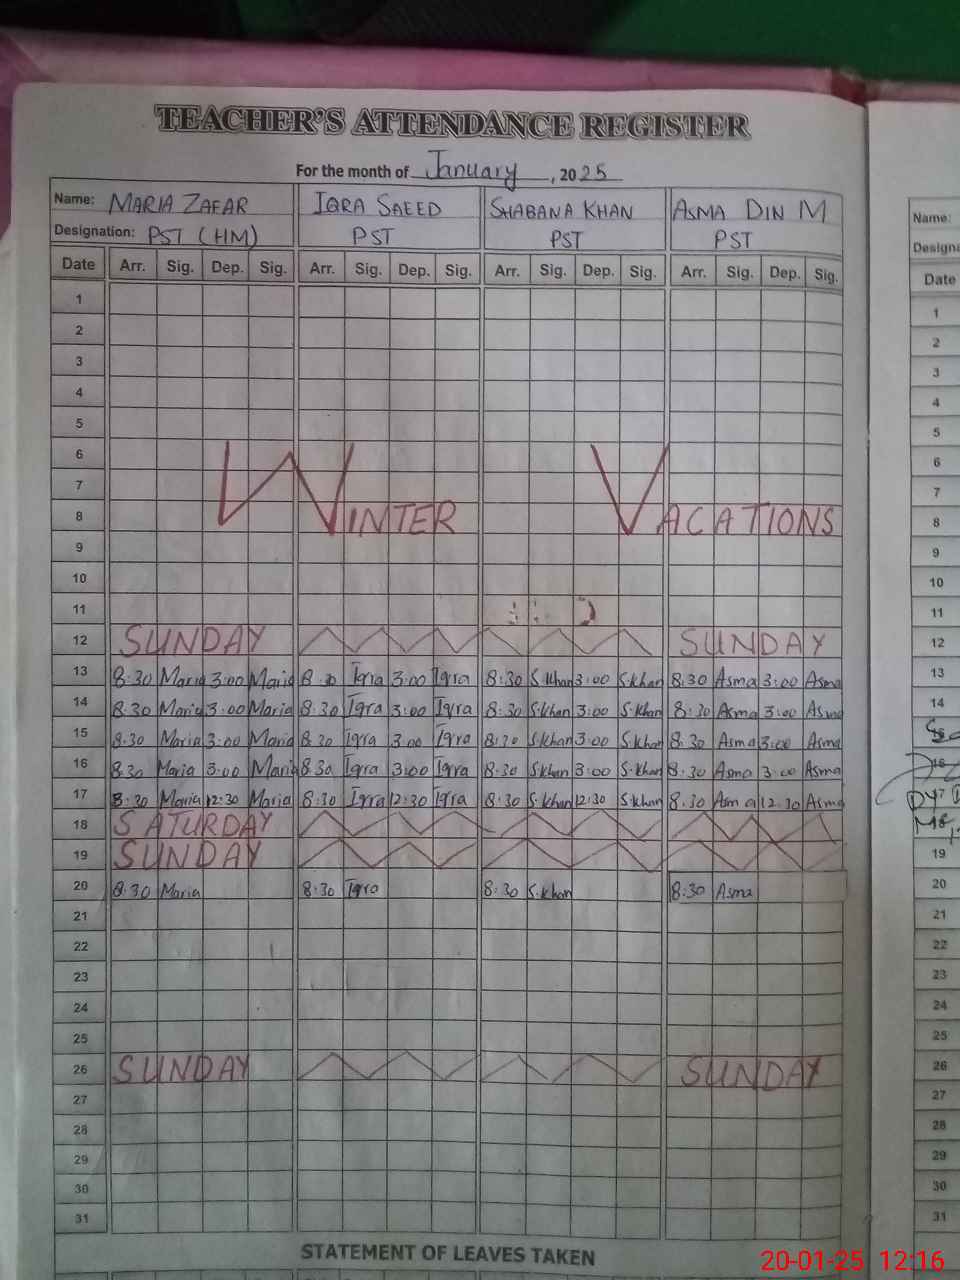 TEACHER'S ATTENDANCE REGISTER
For the month of January, 2025
Name: MARIA ZAFAR IQRA SAEED SHABANA KHAN ASMA DIN M
Designation: PST (HM) PST PST PST
Date Arr. Sig. Dep. Sig. Arr. Sig. Dep. Sig. Arr. Sig. Dep. Sig. Arr. Sig. Dep. Sig.
1
2
3
4
5
6
7
8 WINTER VACATIONS
9
10
11
12 SUNDAY SUNDAY
13 8:30 Maria 3:00 Maria 8:30 Iqra 3:00 Iqra 8:30 S.Khan 3:00 S.Khan 8:30 Asma 3:00 Asma
14 8:30 Maria 3:00 Maria 8:30 Iqra 3:00 Iqra 8:30 S.Khan 3:00 S.Khan 8:30 Asma 3:00 Asma
15 8:30 Maria 3:00 Maria 8:30 Iqra 3:00 Iqra 8:30 S.Khan 3:00 S.Khan 8:30 Asma 3:00 Asma
16 8:30 Maria 3:00 Maria 8:30 Iqra 3:00 Iqra 8:30 S.Khan 3:00 S.Khan 8:30 Asma 3:00 Asma
17 8:30 Maria 12:30 Maria 8:30 Iqra 12:30 Iqra 8:30 S.Khan 12:30 S.Khan 8:30 Asma 12:30 Asma
18 SATURDAY
19 SUNDAY
20 8:30 Maria 8:30 Iqra 8:30 S.Khan 8:30 Asma
21
22
23
24
25
26 SUNDAY SUNDAY
27
28
29
30
31
STATEMENT OF LEAVES TAKEN
Name:
Date
1
2
3
4
5
6
7
8
9
10
11
12
13
14
19
20
21
22
23
24
25
26
27
28
29
30
31
20-01-25 12:16